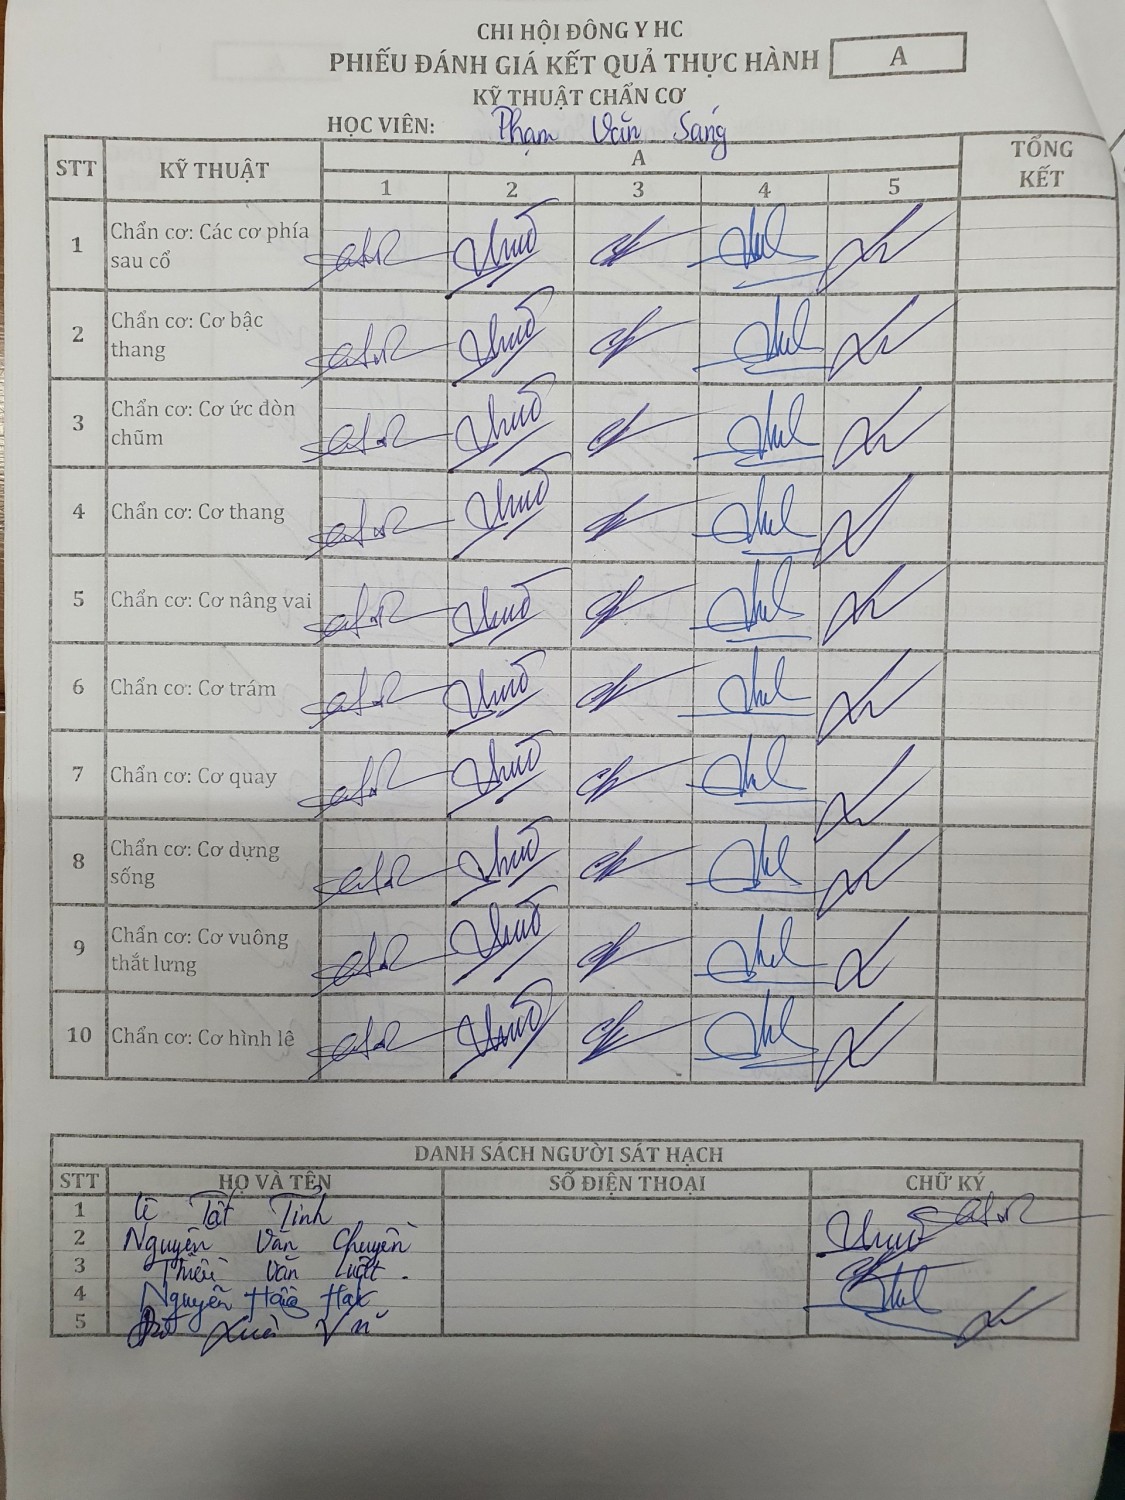 CHI HỘI ĐÔNG Y HC
PHIẾU ĐÁNH GIÁ KẾT QUẢ THỰC HÀNH A
KỸ THUẬT CHẨN CƠ
HỌC VIÊN: Phạm Văn Sang
STT KỸ THUẬT A TỔNG KẾT
1 2 3 4 5
1 Chẩn cơ: Các cơ phía
sau cổ
2 Chẩn cơ: Cơ bậc
thang
3 Chẩn cơ: Cơ ức đòn
chũm
4 Chẩn cơ: Cơ thang
5 Chẩn cơ: Cơ nâng vai
6 Chẩn cơ: Cơ trám
7 Chẩn cơ: Cơ quay
8 Chẩn cơ: Cơ dựng
sống
9 Chẩn cơ: Cơ vuông
thắt lưng
10 Chẩn cơ: Cơ hình lê
DANH SÁCH NGƯỜI SÁT HẠCH
STT HỌ VÀ TÊN SỐ ĐIỆN THOẠI CHỮ KÝ
1 Lê Tất Tính
2 Nguyễn Văn Chuyên
3 Thiều Văn Luật
4 Nguyễn
5 Xuân